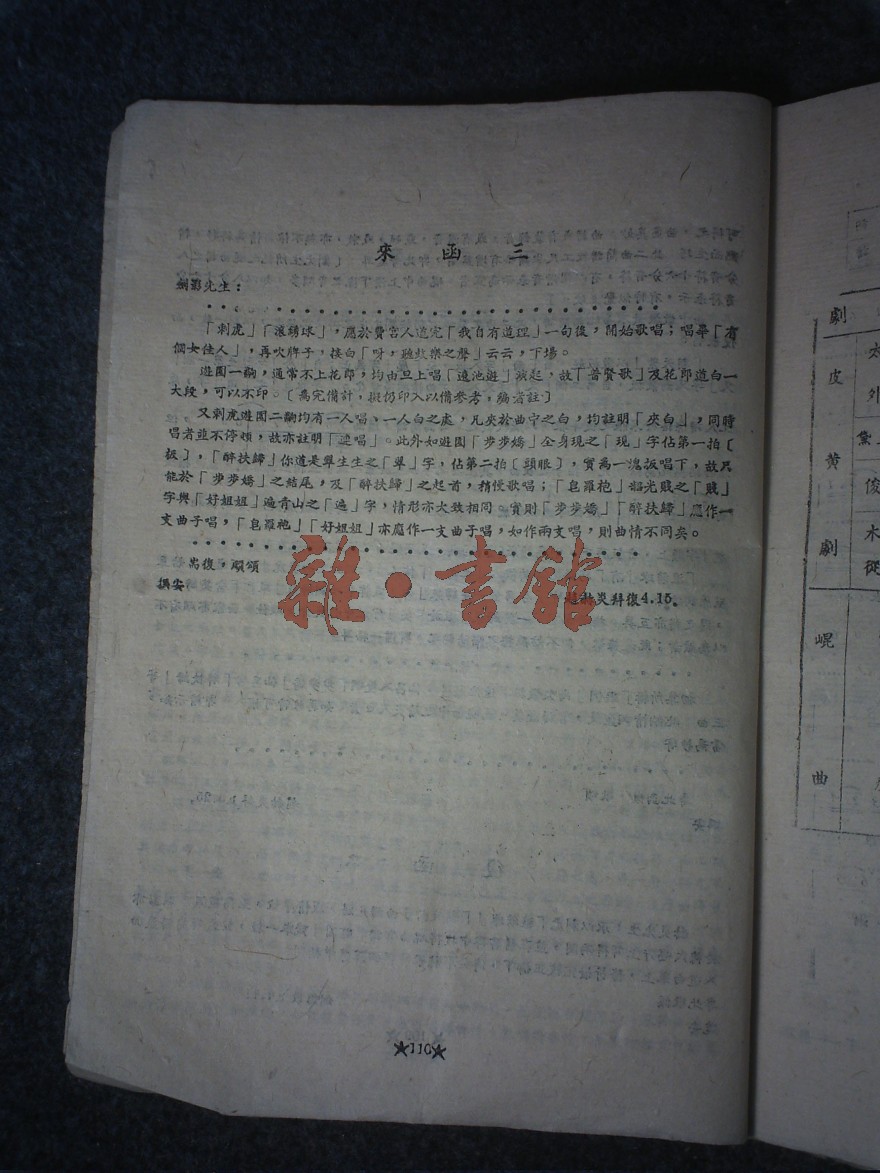 來函三
劍影先生：
「刺虎」「滾綉球」，應於費宮人遶完「我自有道理」一句後，開始歌唱；唱畢「有
個女佳人」，再吹牌子，接白「呀，聽鼓樂之聲」云云，下場。
遊園一齣，通常不上花郎，均由旦上唱「遶池遊」演起，故「普賢歌」及花郎道白一
大段，可以不印。〔為完備計，擬仍印入以備參考，編者註〕
又刺虎遊園二齣均有一人唱、一人白之處，凡夾於曲中之白，均註明「夾白」，同時
唱者並不停頓，故亦註明「連唱」。此外如遊園「步步嬌」全身現之「現」字佔第一拍〔
板〕，「醉扶歸」你道是翠生生之「翠」字，佔第二拍〔頭眼〕，實為一塊板唱下，故只
能於「步步嬌」之結尾，及「醉扶歸」之起首，稍慢歌唱；「皂羅袍」韶光賤之「賤」
字與「好姐姐」遍青山之「遍」字，情形亦大致相同。實則「步步嬌」「醉扶歸」應作一
支曲子唱，「皂羅袍」「好姐姐」亦應作一支曲子唱，如作兩支唱，則曲情不同矣。
耑復，順頌
撰安
炎拜復4.15。
雜·書館
★110★
劇
皮
黃
劇
崐
曲
外
黨
俊
木
從